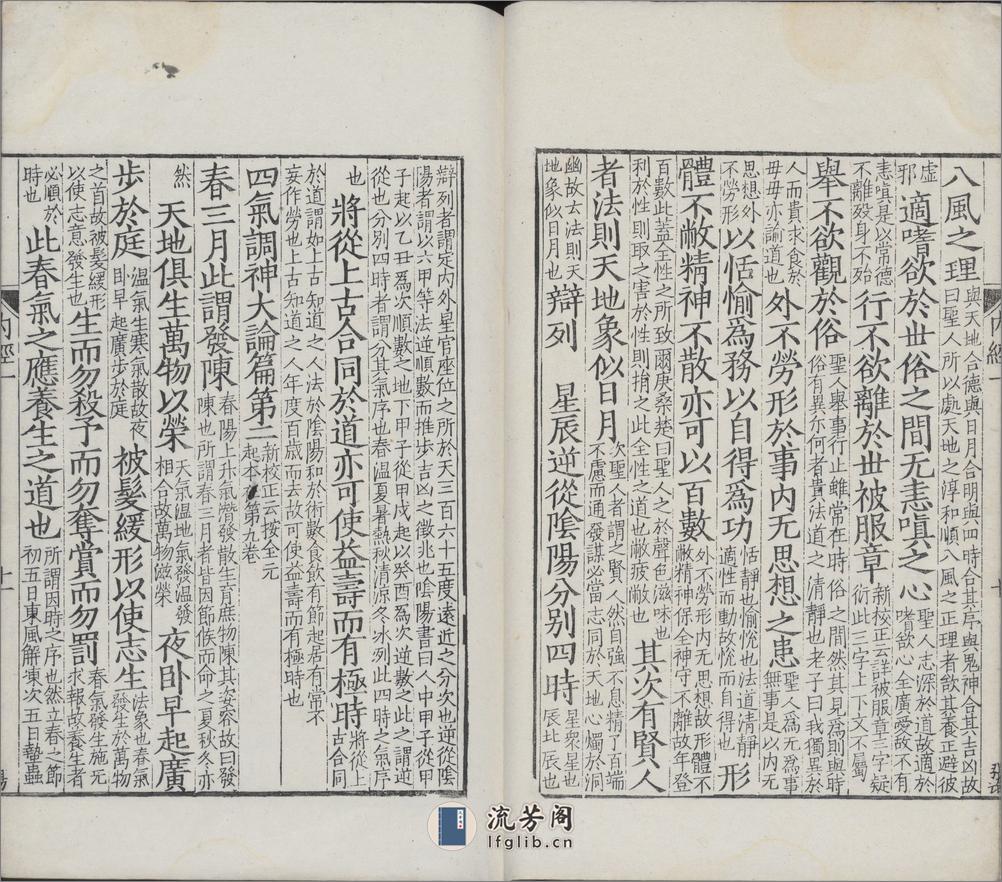 八風之理
與天地合德與日月合明與四時合其序與鬼神合其吉凶故
曰聖人所以處天地之淳和順八風之正理者欲其養正避彼
虛
邪
適嗜欲於世俗之間无恚嗔之心
聖人志深於道故適於
嗜欲心全廣愛故不有
恚嗔是以常德
不離歿身不殆
行不欲離於世被服章
新校正云詳被服章三字疑
衍此三字上下文不屬
舉不欲觀於俗
聖人舉事行止雖常在時俗之間然其見爲則與時
俗有異尒何者貴法道之清靜也老子曰我獨異於
人而貴求食於
母母亦諭道也
外不勞形於事内无思想之患
聖人爲无爲事
無事是以内无
思想外
不勞形
以恬愉爲務以自得爲功
恬靜也愉悅也法道清靜
適性而動故悅而自得也
形
體不敝精神不散亦可以百數
外不勞形内无思想故形體不
敝精神保全神守不離故年登
百數此蓋全性之所致爾庚桑楚曰聖人之於聲色滋味也
利於性則取之害於性則捐之此全性之道也敝疲敝也
其次有賢人
者法則天地象似日月
次聖人者謂之賢人然自強不息精了百端
不慮而通發謀必當志同於天地心燭於洞
幽故云法則天
地象似日月也
辯列星辰逆從陰陽分別四時
星衆星也
辰北辰也
辯列者謂定内外星官座位之所於天三百六十五度遠近之分次也逆從陰
陽者謂以六甲等法逆順數而推步吉凶之徵兆也陰陽書曰人中甲子從甲
子起以乙丑爲次順數之地下甲子從甲戌起以癸酉爲次逆數之此之謂逆
從也分別四時者謂分其氣序也春溫夏暑熱秋清涼冬冰冽此四時之氣序
也
將從上古合同於道亦可使益壽而有極時
將從上
古合同
於道謂如上古知道之人法於陰陽和於術數食飲有節起居有常不
妄作勞也上古知道之人年度百歲而去故可使益壽而有極時也
四氣調神大論篇第二
新校正云按全元
起本在第九卷
春三月此謂發陳
春陽上升氣潛發散生育庶物陳其姿容故曰發
陳也所謂春三月者皆因節候而命之夏秋冬亦
然
天地俱生萬物以榮
天氣溫地氣發溫發
相合故萬物滋榮
夜卧早起廣
步於庭
溫氣生寒氣散故夜
卧早起廣步於庭
被髮緩形以使志生
法象也春氣
發生於萬物
之首故被髮緩形
以使志意發生也
生而勿殺予而勿奪賞而勿罰
春氣發生施无
求報故養生者
必順於
時也
此春氣之應養生之道也
所謂因時之序也然立春之節
初五日東風解凍次五日蟄蟲
内經一
流芳阁
lfglib.cn